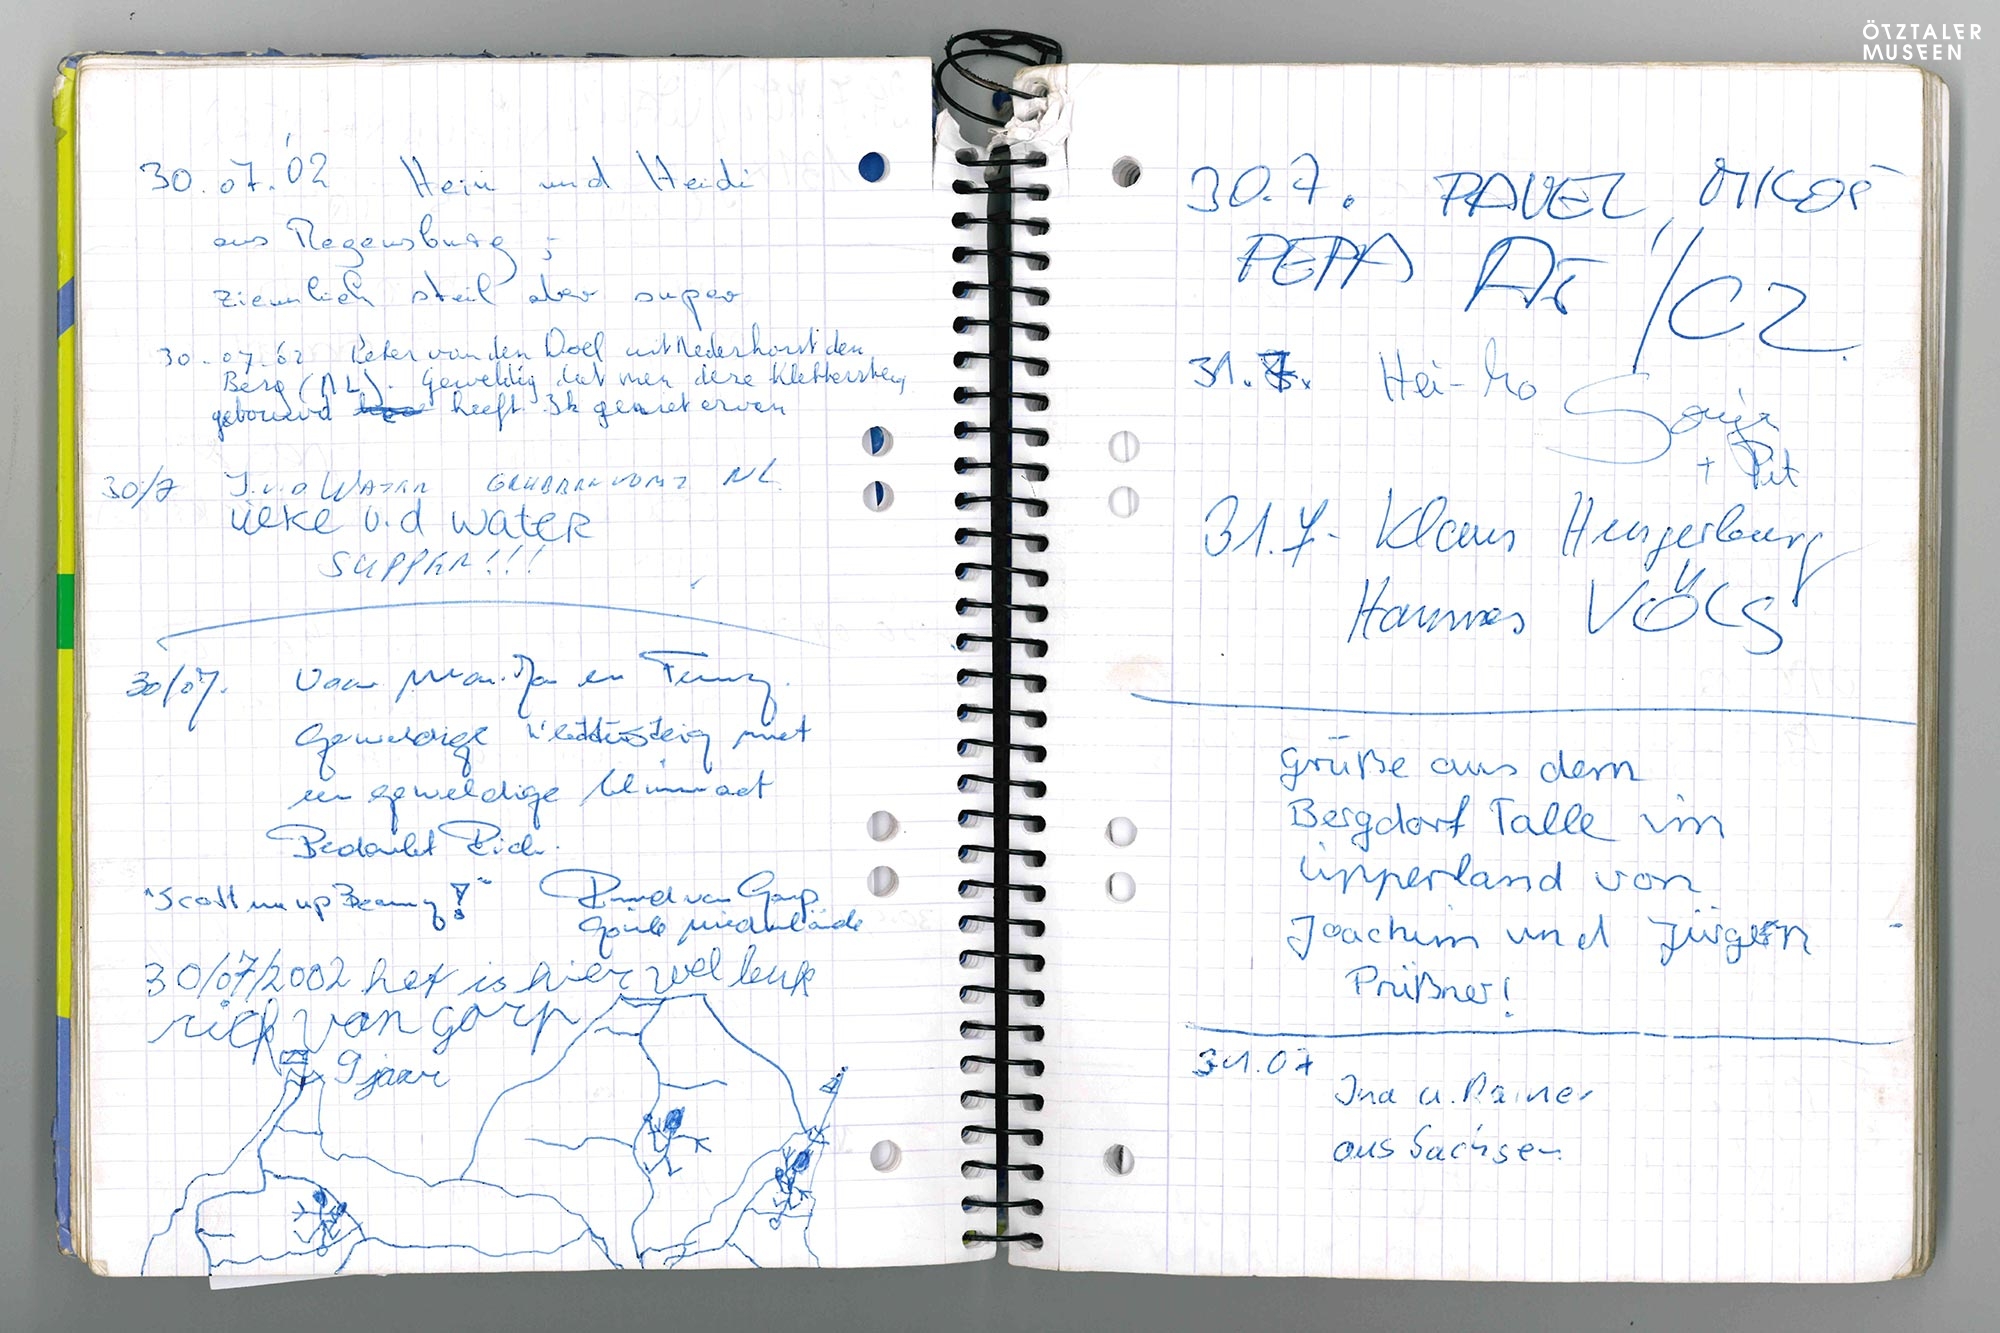 30.07.'02 Heini und Heidi
aus Regensburg,
ziemlich steil aber super
30.07.02 Peter van den Doel uit Nederhorst den
Berg (NL). Geweldig dat men deze Klettersteig
gebouwd heeft. Ik geniet ervan
30/7 J.v.d WATER NL
ilekE v.d WatER
SUPPER!!!
30/07.
Geweldige Klettersteig met
een geweldige
Bedankt
van Gorp
30/07/2002 het is hier wel leuk
rick van gorp
9 jaar
30.7. PAVEL MIKOŠ
PEPA AŠ /CZ
31.7. Hei-ho Sonja
+ Pit
31.7. Klaus Hungerburg
Hannes VÖLS
Grüße aus dem
Bergdorf Talle im
Lipperland von
Joachim und Jürgen
Prüßner!
31.07
Ina u. Rainer
aus Sachsen
ÖTZTALER
MUSEEN